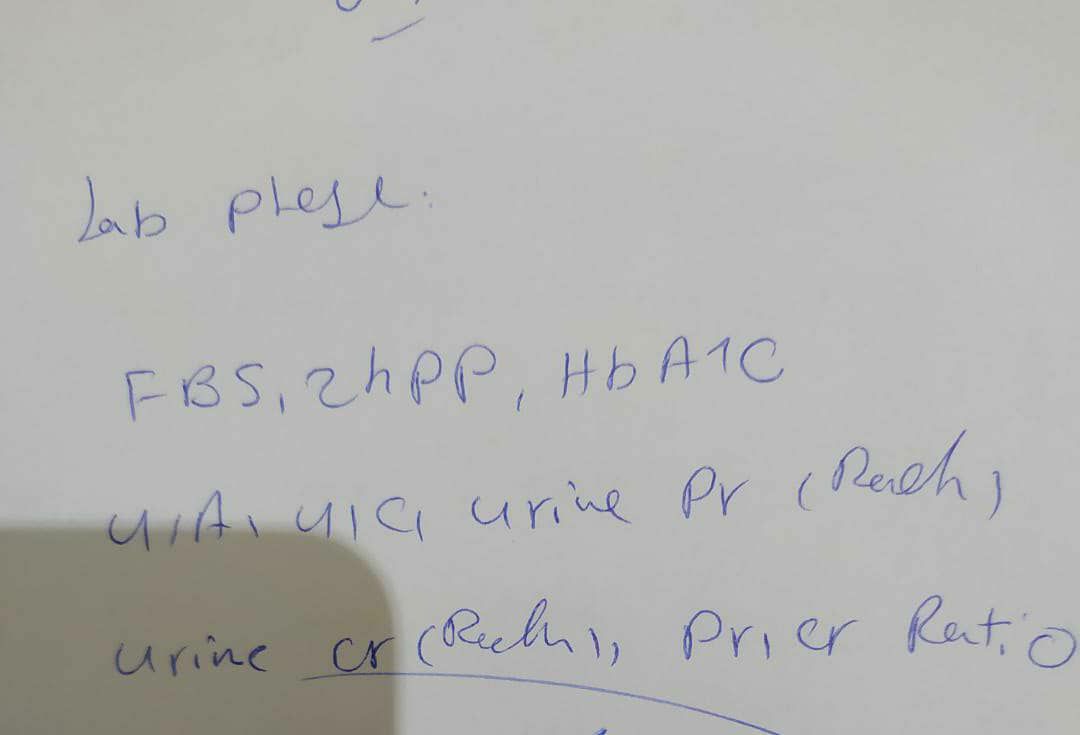 Lab please:
FBS, 2hPP, HbA1C
U/A, U/C, urine Pr (Rach)
urine cr (Rach), Pr, cr Ratio